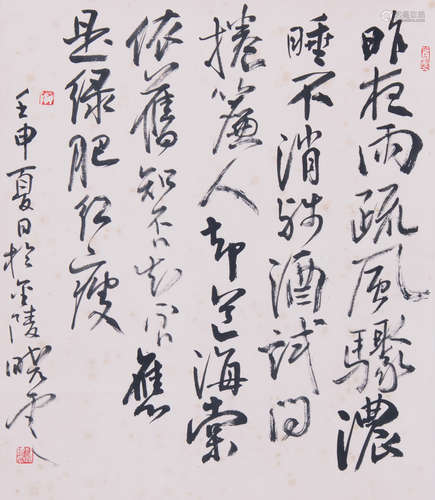 昨夜雨疏风骤濃
睡不消残酒試问
捲簾人却道海棠
依舊知否知否應
是绿肥红瘦
壬申夏日於金陵晓雲